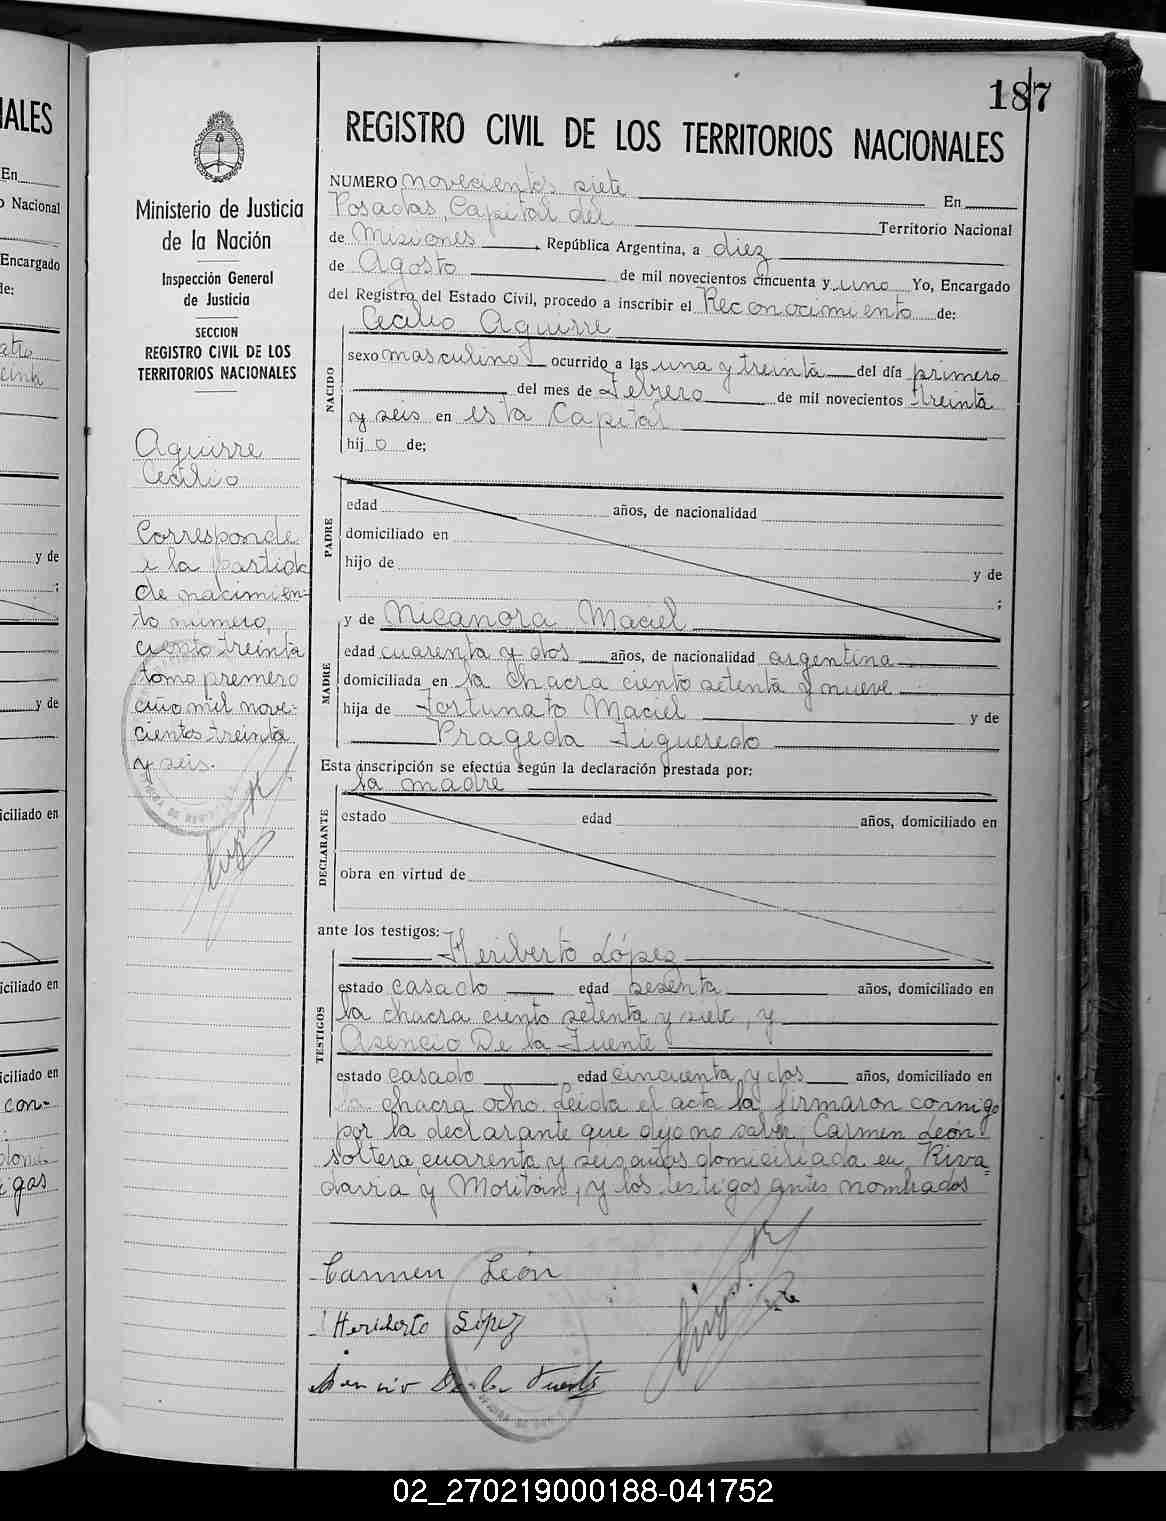 187
REGISTRO CIVIL DE LOS TERRITORIOS NACIONALES
NUMERO novecientos siete En
Posadas, Capital del Territorio Nacional
de Misiones, República Argentina, a diez
de Agosto de mil novecientos cincuenta y uno Yo, Encargado
del Registro del Estado Civil, procedo a inscribir el Reconocimiento de:
Cecilio Aguirre
NACIDO
sexo masculino ocurrido a las una y treinta del día primero
del mes de Febrero de mil novecientos treinta
y seis en esta Capital
hijo de;
PADRE
edad años, de nacionalidad
domiciliado en
hijo de y de
;
y de Nicanora Maciel
MADRE
edad cuarenta y dos años, de nacionalidad argentina
domiciliada en la chacra ciento setenta y nueve
hija de Fortunato Maciel y de
Prageda Figueredo
Esta inscripción se efectúa según la declaración prestada por:
la madre
DECLARANTE
estado edad años, domiciliado en
obra en virtud de
ante los testigos:
Heriberto López
TESTIGOS
estado casado edad sesenta años, domiciliado en
la chacra ciento setenta y siete, y
Asencio De la Fuente
estado casado edad cincuenta y dos años, domiciliado en
la chacra ocho. Leida el acta la firmaron conmigo
por la declarante que dijo no saber, Carmen León
soltera, cuarenta y seis años domiciliada en Riva=
davia y Moritán, y los testigos antes nombrados
Carmen León
Heriberto López
Asencio De la Fuente
Ministerio de Justicia
de la Nación
Inspección General
de Justicia
SECCION
REGISTRO CIVIL DE LOS
TERRITORIOS NACIONALES
Aguirre
Cecilio
Corresponde
a la partida
de nacimien=
to número,
ciento treinta
tomo primero
año mil nove-
cientos treinta
y seis.
NALES
En
o Nacional
Encargado
de:
y de
;
y de
iciliado en
iciliado en
iciliado en
con=
02_270219000188-041752